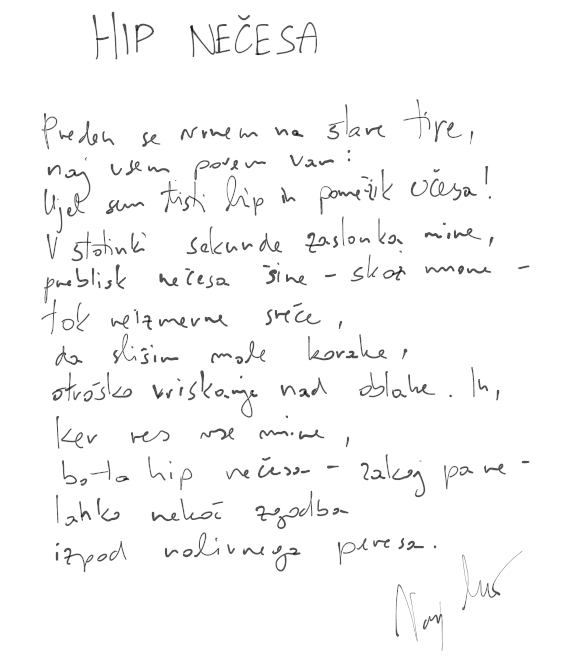 HIP NEČESA
Preden se vrnem na stare tire,
naj vsem povem vam:
Ujel sem tisti hip in pomežik očesa!
V stotinki sekunde zaslonka mine,
preblisk nečesa šine - skoz mene -
tok neizmerne sreče,
da slišim male korake,
otroško vriskanje nad oblake. In,
ker res vse mine,
bo ta hip nečesa - zakaj pa ne -
lahko nekoč zgodba
izpod nalivnega peresa.